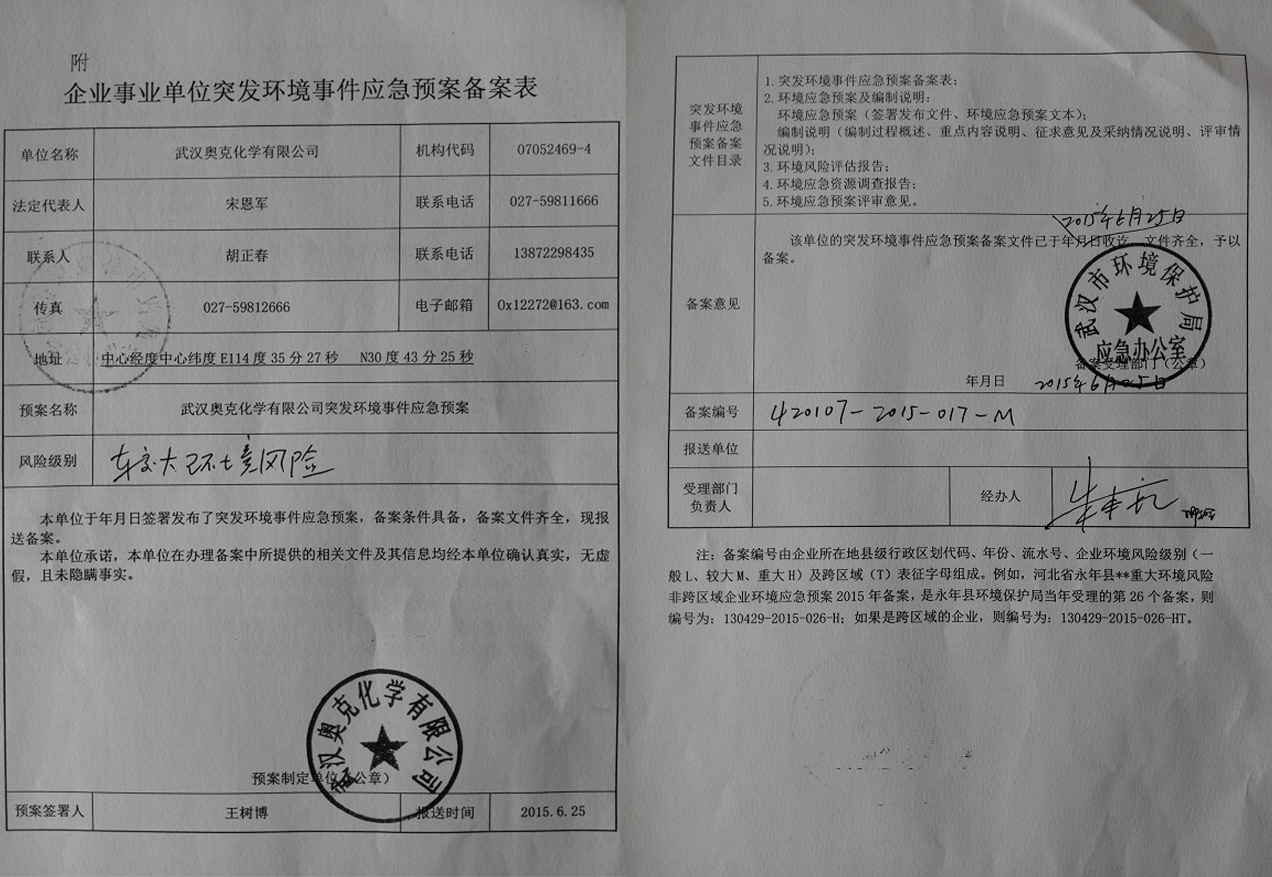 附
企业事业单位突发环境事件应急预案备案表
单位名称 武汉奥克化学有限公司 机构代码 07052469-4
法定代表人 宋恩军 联系电话 027-59811666
联系人 胡正春 联系电话 13872298435
传真 027-59812666 电子邮箱 0x12272@163.com
地址 中心经度中心纬度 E114 度 35 分 27 秒 N30 度 43 分 25 秒
预案名称 武汉奥克化学有限公司突发环境事件应急预案
风险级别 较大环境风险
本单位于年月日签署发布了突发环境事件应急预案，备案条件具备，备案文件齐全，现报
送备案。
本单位承诺，本单位在办理备案中所提供的相关文件及其信息均经本单位确认真实，无虚
假，且未隐瞒事实。
武汉奥克化学有限公司
预案制定单位（公章）
预案签署人 王树博 报送时间 2015.6.25
突发环境
事件应急
预案备案
文件目录
1. 突发环境事件应急预案备案表；
2. 环境应急预案及编制说明：
环境应急预案（签署发布文件、环境应急预案文本）；
编制说明（编制过程概述、重点内容说明、征求意见及采纳情况说明、评审情
况说明）；
3. 环境风险评估报告；
4. 环境应急资源调查报告；
5. 环境应急预案评审意见。
2015年6月25日
备案意见
该单位的突发环境事件应急预案备案文件已于年月日收讫，文件齐全，予以
备案。
武汉市环境保护局
应急办公室
备案受理部门（公章）
年月日 2015年6月25日
备案编号 420107-2015-017-M
报送单位
受理部门
负责人
经办人
注：备案编号由企业所在地县级行政区划代码、年份、流水号、企业环境风险级别（一
般 L、较大 M、重大 H）及跨区域（T）表征字母组成。例如，河北省永年县**重大环境风险
非跨区域企业环境应急预案 2015 年备案，是永年县环境保护局当年受理的第 26 个备案，则
编号为：130429-2015-026-H；如果是跨区域的企业，则编号为：130429-2015-026-HT。